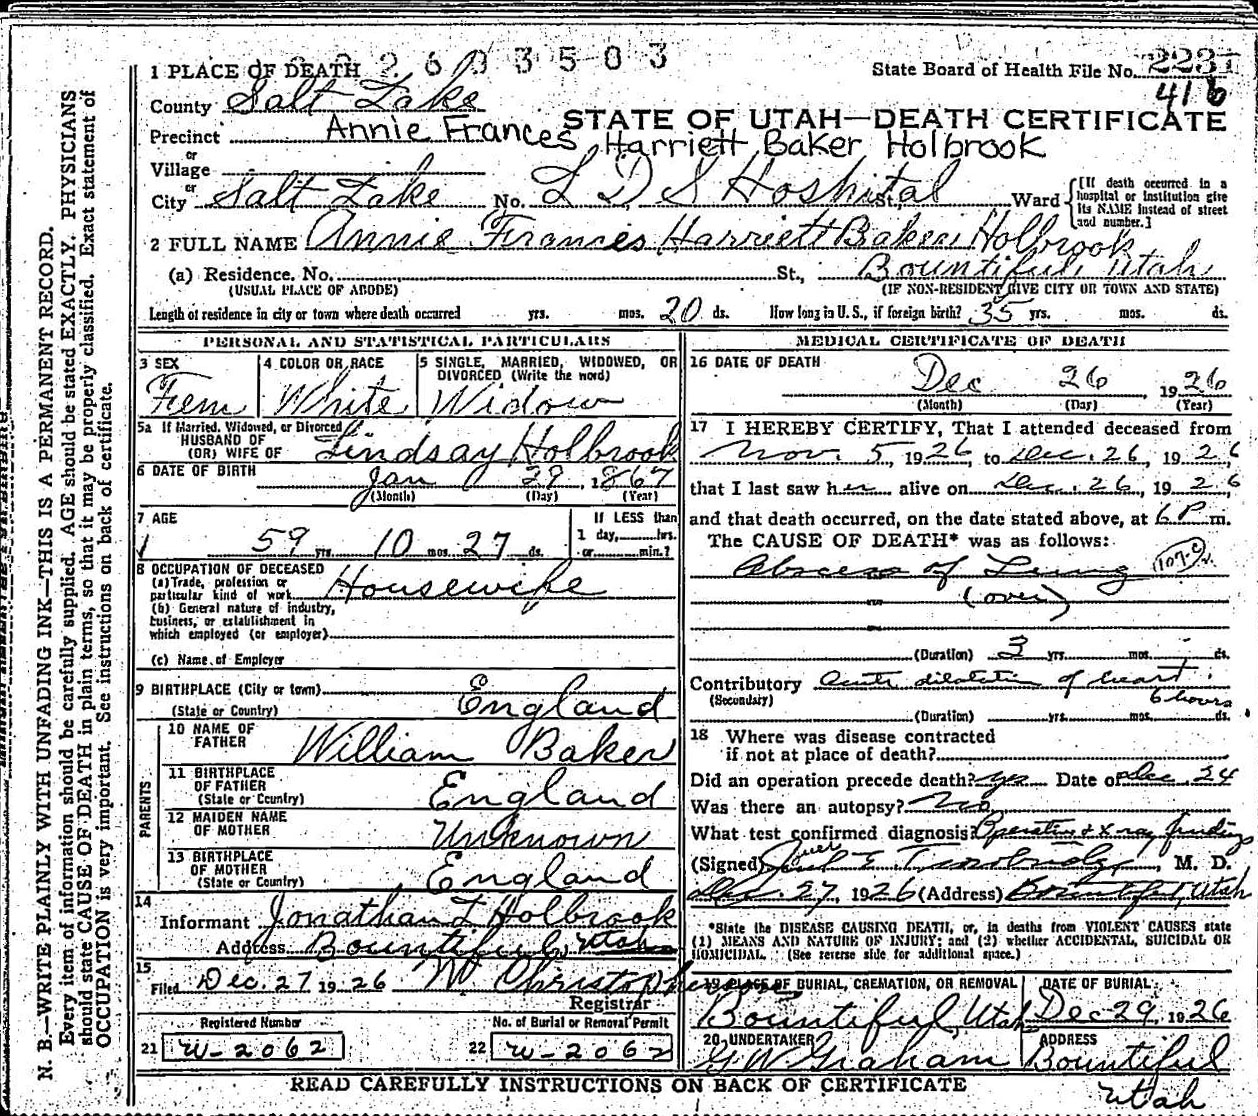 N. B.—WRITE PLAINLY WITH UNFADING INK—THIS IS A PERMANENT RECORD.
Every item of information should be carefully supplied. AGE should be stated EXACTLY. PHYSICIANS
should state CAUSE OF DEATH in plain terms, so that it may be properly classified. Exact statement of
OCCUPATION is very important. See instructions on back of certificate.
1 PLACE OF DEATH 2 6 0 3 5 0 3
State Board of Health File No. 2231
416
County Salt Lake
STATE OF UTAH—DEATH CERTIFICATE
Precinct Annie Frances Harriett Baker Holbrook
or
Village
or
City Salt Lake No. L D S Hospital St. Ward
[If death occurred in a
hospital or institution give
its NAME instead of street
and number.]
2 FULL NAME Annie Frances Harriett Baker Holbrook
(a) Residence. No. St., Bountiful, Utah
(USUAL PLACE OF ABODE) (IF NON-RESIDENT GIVE CITY OR TOWN AND STATE)
Length of residence in city or town where death occurred yrs. mos. 20 ds. How long in U. S., if foreign birth? 35 yrs. mos. ds.
PERSONAL AND STATISTICAL PARTICULARS
3 SEX
Fem
4 COLOR OR RACE
White
5 SINGLE, MARRIED, WIDOWED, OR
DIVORCED (Write the word)
Widow
5a If Married, Widowed, or Divorced
HUSBAND OF
(OR) WIFE OF Lindsay Holbrook
6 DATE OF BIRTH Jan 29, 1867
(Month) (Day) (Year)
7 AGE
59 yrs. 10 mos. 27 ds.
If LESS than
1 day, hrs.
or min.?
8 OCCUPATION OF DECEASED
(a) Trade, profession or
particular kind of work Housewife
(b) General nature of industry,
business, or establishment in
which employed (or employer)
(c) Name of Employer
9 BIRTHPLACE (City or town)
(State or Country) England
PARENTS
10 NAME OF
FATHER William Baker
11 BIRTHPLACE
OF FATHER
(State or Country) England
12 MAIDEN NAME
OF MOTHER Unknown
13 BIRTHPLACE
OF MOTHER
(State or Country) England
14
Informant Jonathan L Holbrook
Address Bountiful, Utah
15
Filed Dec. 27 1926 M Christopherson
Registrar
Registered Number
21 W-2062
No. of Burial or Removal Permit
22 W-2062
MEDICAL CERTIFICATE OF DEATH
16 DATE OF DEATH
Dec 26 1926
(Month) (Day) (Year)
17 I HEREBY CERTIFY, That I attended deceased from
Nov. 5, 1926, to Dec. 26, 1926
that I last saw her alive on Dec. 26, 1926
and that death occurred, on the date stated above, at 6 P m.
The CAUSE OF DEATH* was as follows:
Abscess of Lung
(over)
(Duration) 3 yrs. mos. ds.
Contributory Acute dilatation of heart.
(Secondary) 6 hours
(Duration) yrs. mos. ds.
18 Where was disease contracted
if not at place of death?
Did an operation precede death? yes Date of Dec. 24
Was there an autopsy? No
What test confirmed diagnosis? Operation & X ray findings
(Signed) Joel E Trowbridge, M. D.
Dec. 27, 1926 (Address) Bountiful, Utah
*State the DISEASE CAUSING DEATH, or, in deaths from VIOLENT CAUSES state
(1) MEANS AND NATURE OF INJURY; and (2) whether ACCIDENTAL, SUICIDAL OR
HOMICIDAL. (See reverse side for additional space.)
19 PLACE OF BURIAL, CREMATION, OR REMOVAL
Bountiful, Utah
DATE OF BURIAL
Dec 29, 1926
20 UNDERTAKER
G W Graham
ADDRESS
Bountiful
Utah
READ CAREFULLY INSTRUCTIONS ON BACK OF CERTIFICATE